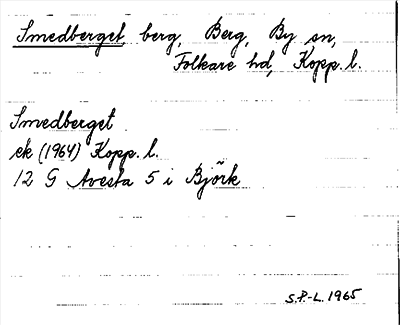 Smedberget, berg, Berg, By sn,
Folkare hd, Kopp. l.
Smedberget
ek (1964) Kopp. l.
12 G Avesta 5 i Björk
S.P.-L. 1965